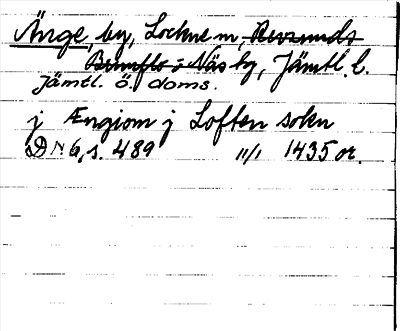 Änge, by, Lockne sn, Revsunds
Brunflo o. Näs tg, Jämtl. l.
Jämtl. ö. doms.
j Ængiom j Loften sokn
DN 6, s. 489 11/1 1435 or.